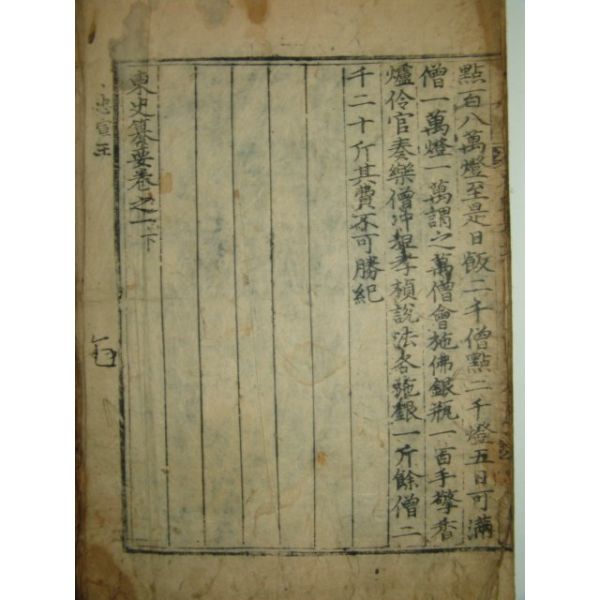 點百八萬燈至是日飯二千僧點二千燈五日可滿
僧一萬燈一萬謂之萬僧會施佛銀瓶一百手擎香
爐伶官奏樂僧冲坦孝楨說法各施銀一斤餘僧二
千二十斤其費不可勝紀
東史纂要卷之一下
忠宣王